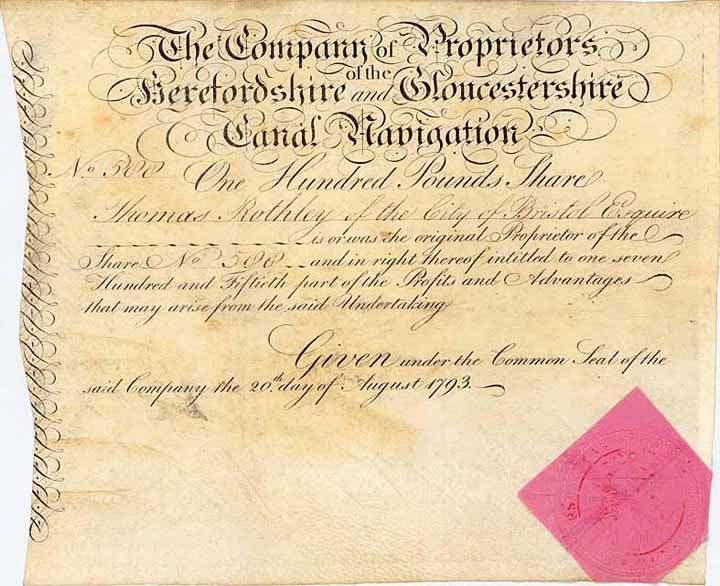 The Company of Proprietors
of the
Herefordshire and Gloucestershire
Canal Navigation
No 508 One Hundred Pounds Share
Thomas Rothley of the City of Bristol Esquire
is or was the original Proprietor of the
Share No 508 and in right thereof intitled to one seven
Hundred and Fiftieth part of the Profits and Advantages
that may arise from the said Undertaking
Given under the Common Seal of the
said Company the 20th day of August 1793.